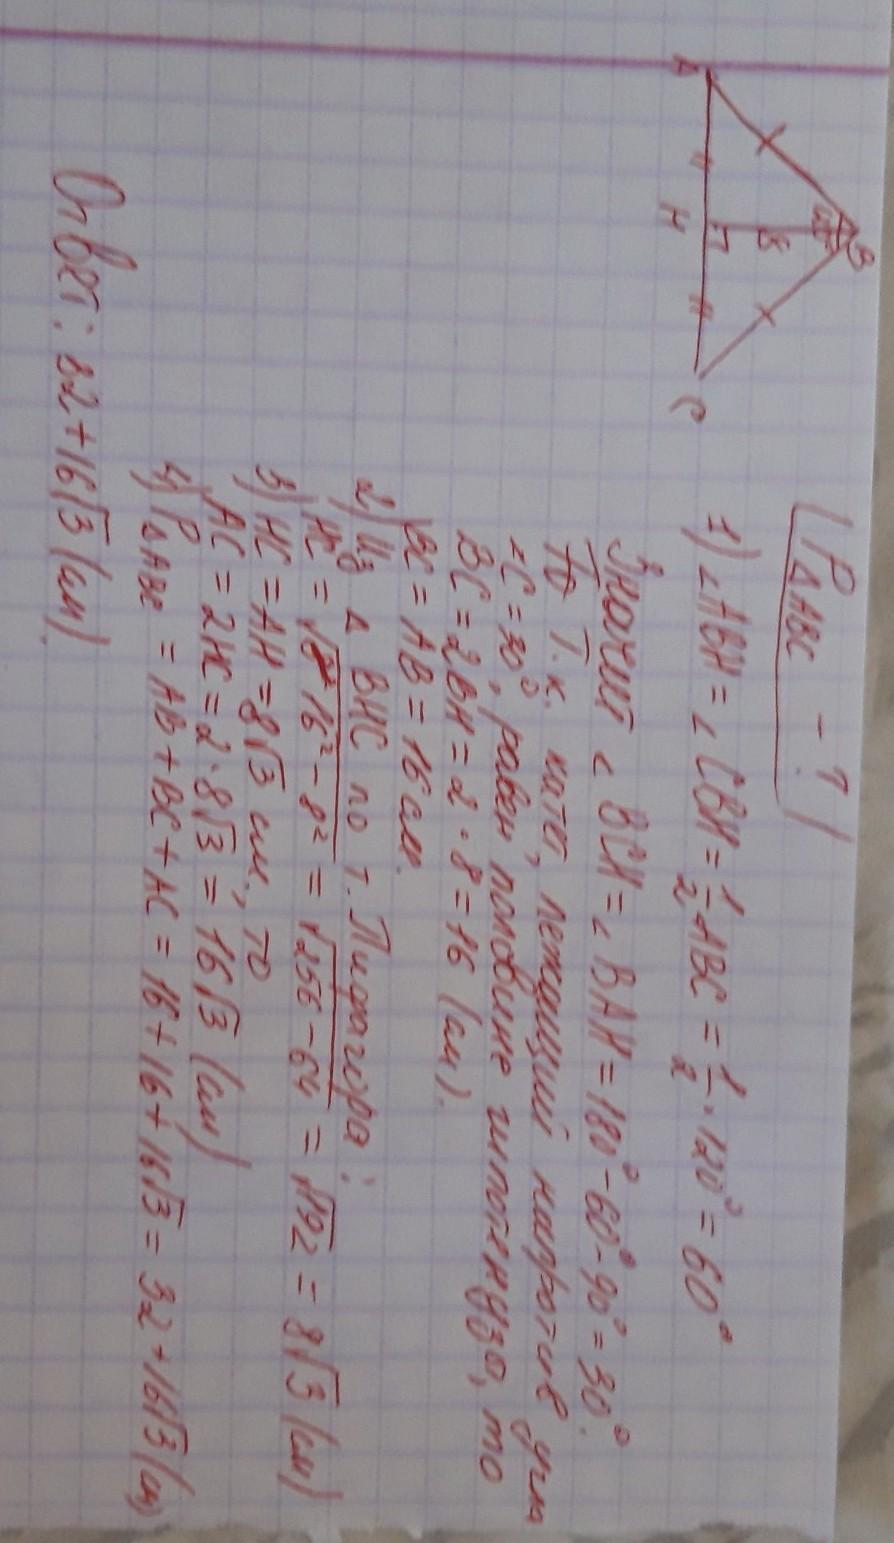 B
A
H
C
8
P△ABC - ?
1) ∠ABH = ∠CBH = 1/2 ABC = 1/2 · 120° = 60°
Значит ∠BCH = ∠BAH = 180° - 60° - 90° = 30°.
Т.к. катет, лежащий напротив угла
∠C = 30°, равен половине гипотенузы, то
BC = 2BH = 2 · 8 = 16 (см).
BC = AB = 16 см.
2) Из △ BHC по т. Пифагора:
HC = √16² - 8² = √256 - 64 = √192 = 8√3 (см)
3) HC = AH = 8√3 см., то
AC = 2HC = 2 · 8√3 = 16√3 (см)
4) P△ABC = AB + BC + AC = 16 + 16 + 16√3 = 32 + 16√3 (см)
Ответ: 32 + 16√3 (см).